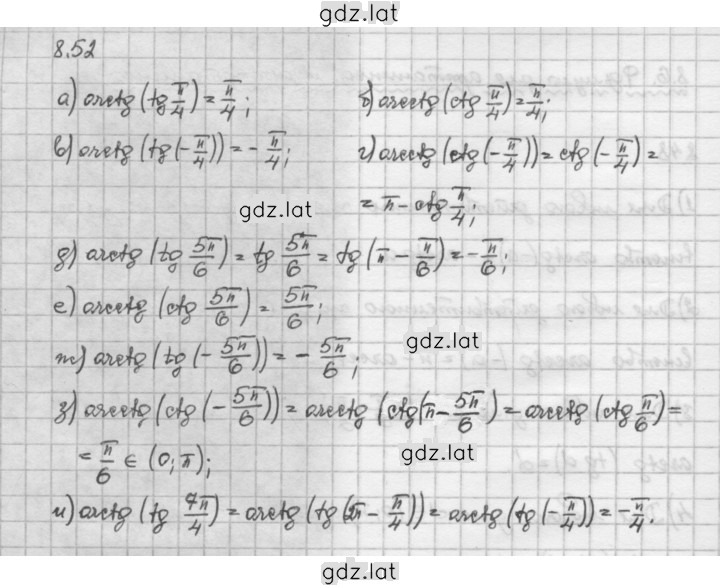 gdz.lat
8.52
а) arctg (tg π/4) = π/4; б) arcctg (ctg π/4) = π/4;
в) arctg (tg (-π/4)) = -π/4; г) arcctg (ctg (-π/4)) = ctg (-π/4) =
gdz.lat
= π - ctg π/4;
д) arctg (tg 5π/6) = tg 5π/6 = tg (π - π/6) = -π/6;
е) arcctg (ctg 5π/6) = 5π/6;
gdz.lat
ж) arctg (tg (-5π/6)) = -5π/6;
з) arcctg (ctg (-5π/6)) = arcctg (ctg (π - 5π/6) = arcctg (ctg π/6) =
gdz.lat
= π/6 ∈ (0; π);
и) arctg (tg 7π/4) = arctg (tg (2π - π/4)) = arctg (tg (-π/4)) = -π/4.
gdz.lat